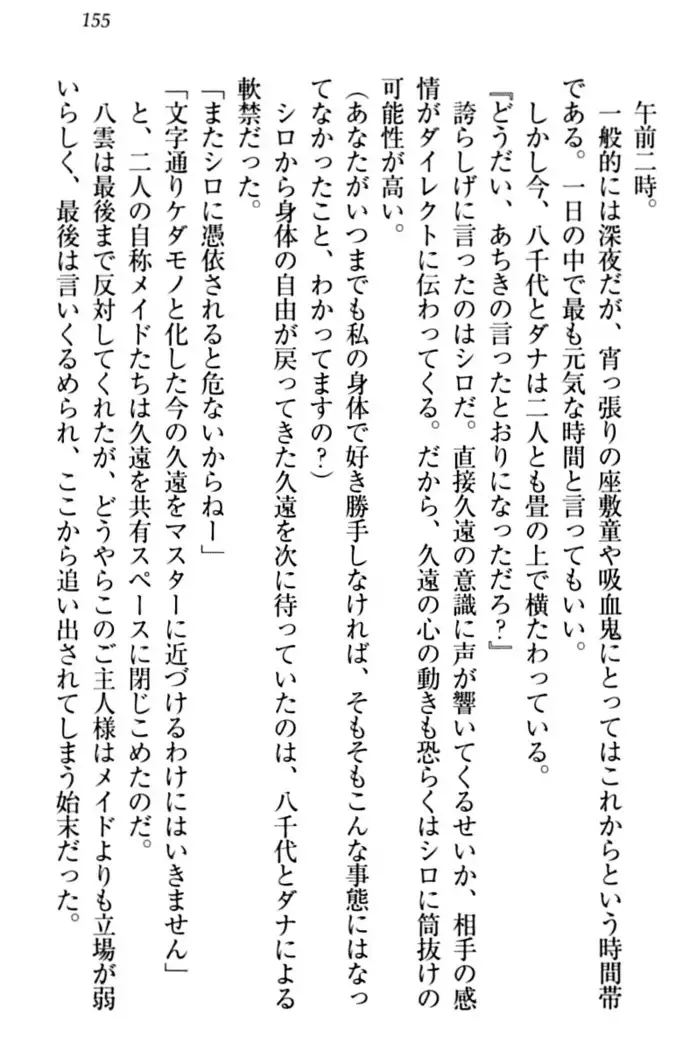 155
午前二時。
一般的には深夜だが、宵っ張りの座敷童や吸血鬼にとってはこれからという時間帯
である。一日の中で最も元気な時間と言ってもいい。
しかし今、八千代とダナは二人とも畳の上で横たわっている。
『どうだい、あちきの言ったとおりになっただろ?』
誇らしげに言ったのはシロだ。直接久遠の意識に声が響いてくるせいか、相手の感
情がダイレクトに伝わってくる。だから、久遠の心の動きも恐らくはシロに筒抜けの
可能性が高い。
(あなたがいつまでも私の身体で好き勝手しなければ、そもそもこんな事態にはなっ
てなかったこと、わかってますの?)
シロから身体の自由が戻ってきた久遠を次に待っていたのは、八千代とダナによる
軟禁だった。
「またシロに憑依されると危ないからねー」
「文字通りケダモノと化した今の久遠をマスターに近づけるわけにはいきません」
と、二人の自称メイドたちは久遠を共有スペースに閉じこめたのだ。
八雲は最後まで反対してくれたが、どうやらこのご主人様はメイドよりも立場が弱
いらしく、最後は言いくるめられ、ここから追い出されてしまう始末だった。